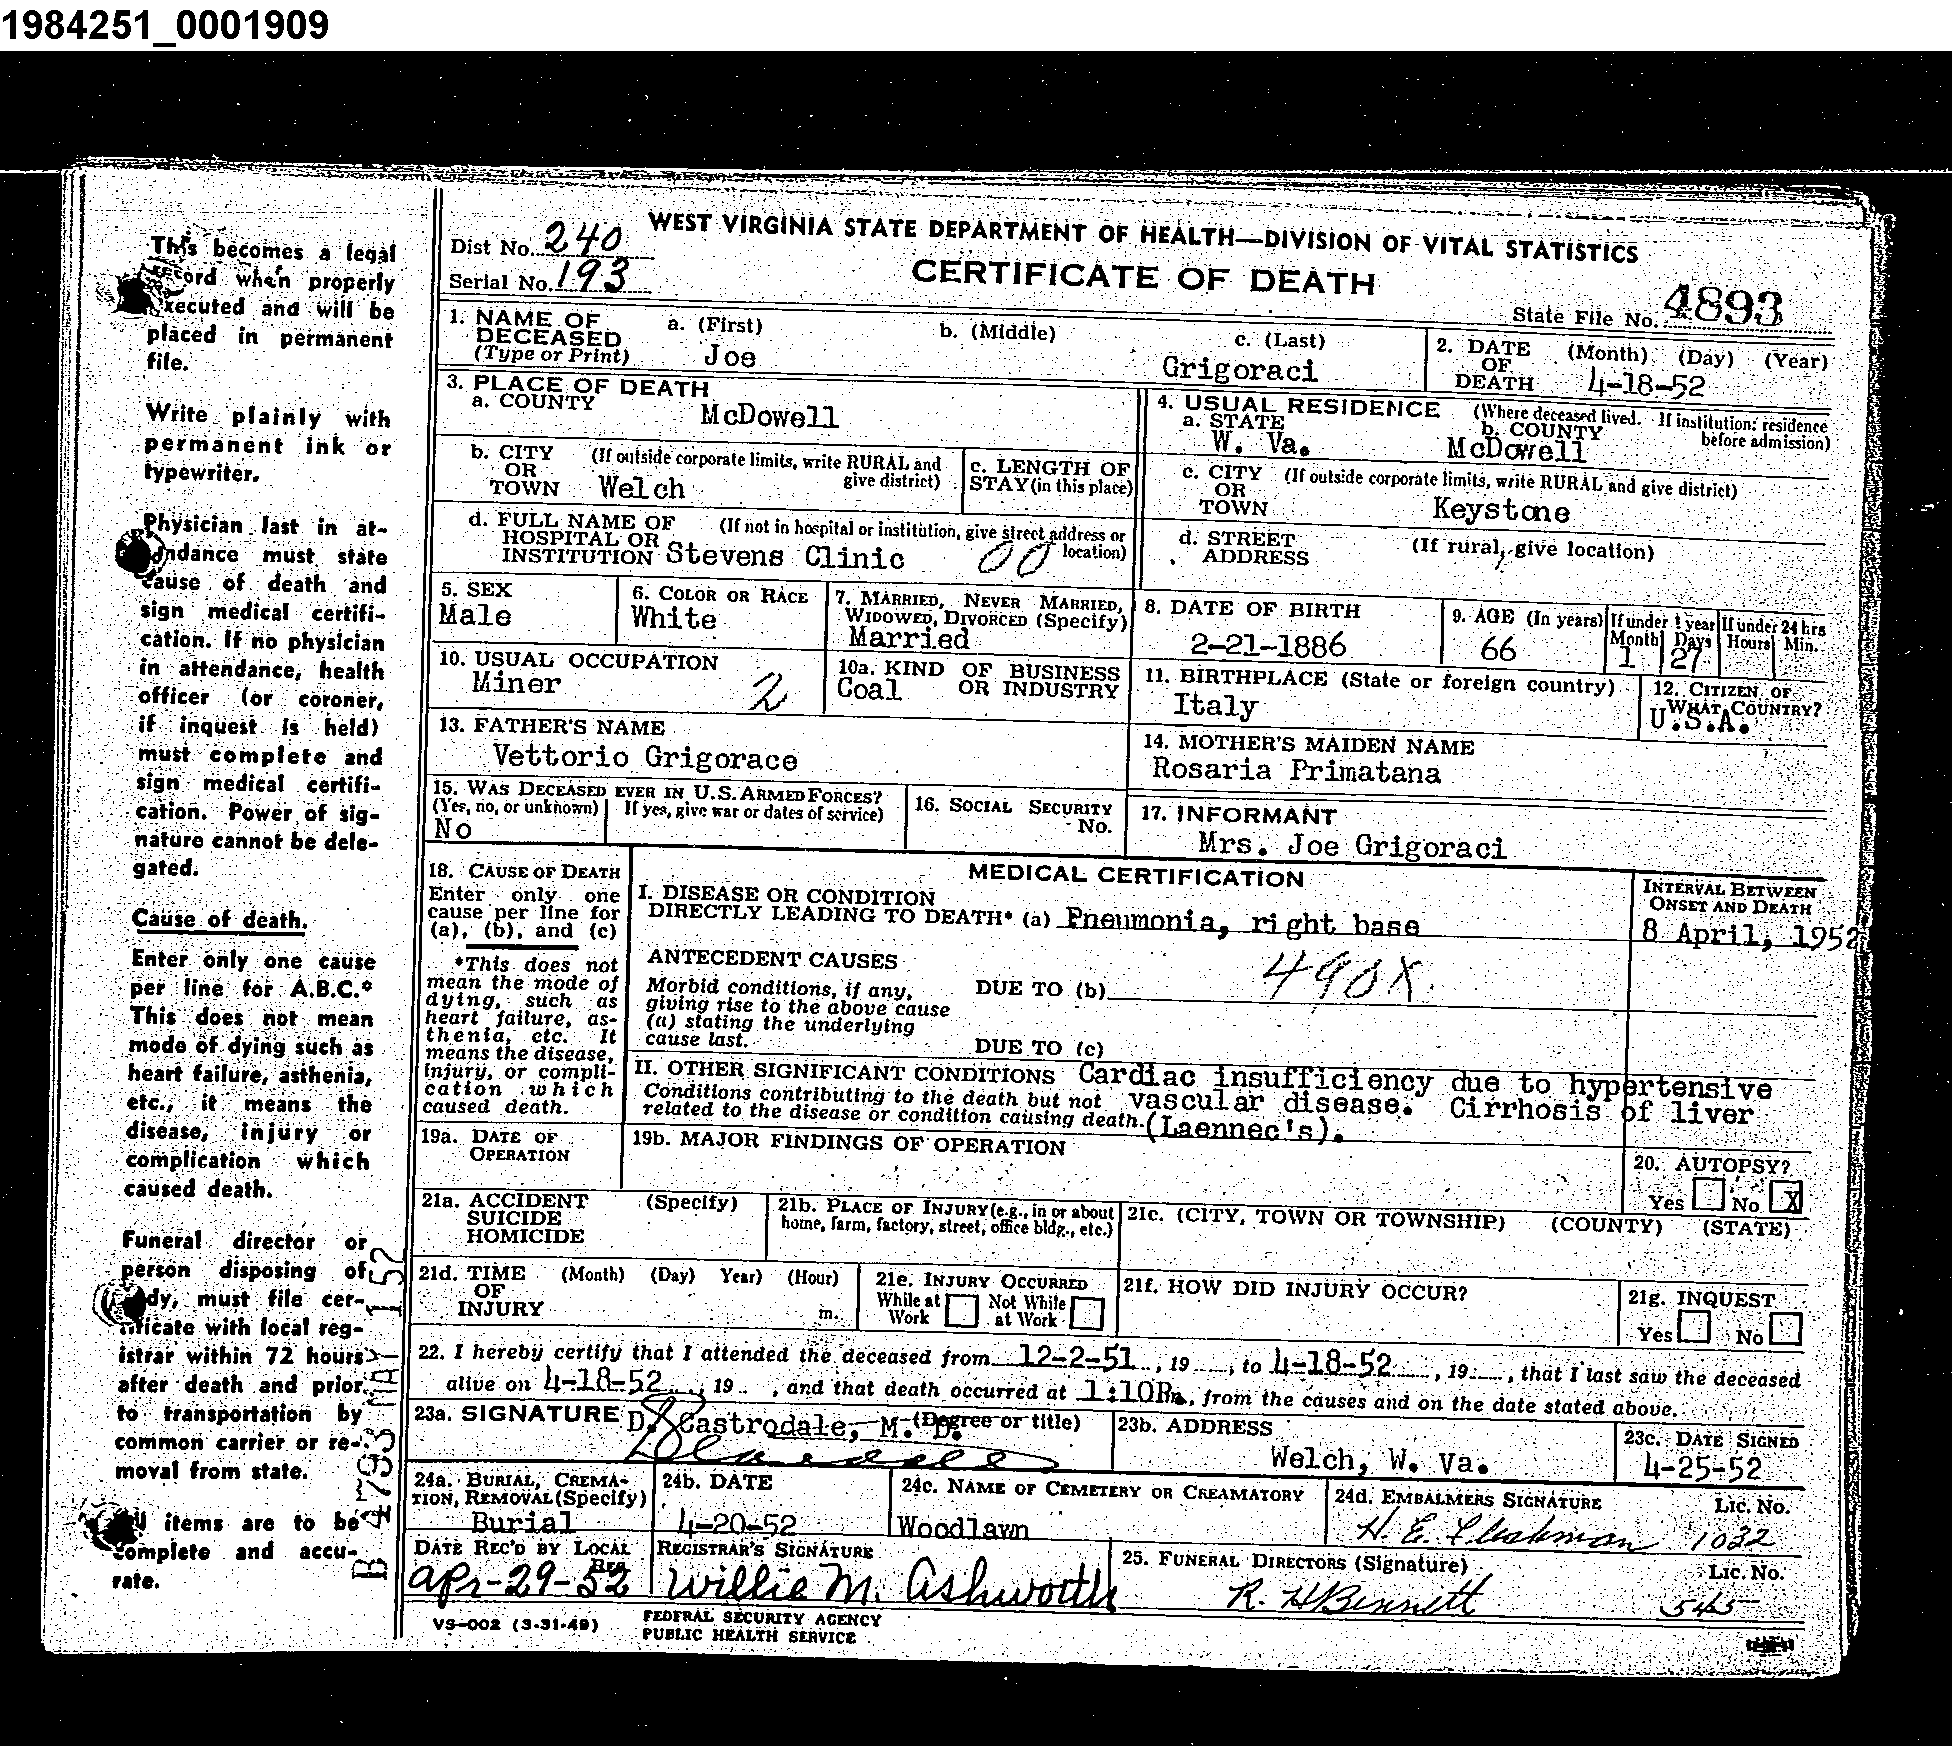 1984251_0001909
This becomes a legal
record when properly
executed and will be
placed in permanent
file.
Write plainly with
permanent ink or
typewriter.
Physician last in at-
tendance must state
cause of death and
sign medical certifi-
cation. If no physician
in attendance, health
officer (or coroner,
if inquest is held)
must complete and
sign medical certifi-
cation. Power of sig-
nature cannot be dele-
gated.
Cause of death.
Enter only one cause
per line for A.B.C.*
This does not mean
mode of dying such as
heart failure, asthenia,
etc., it means the
disease, injury or
complication which
caused death.
Funeral director or
person disposing of
body, must file cer-
tificate with local reg-
istrar within 72 hours
after death and prior
to transportation by
common carrier or re-
moval from state.
All items are to be
complete and accu-
rate.
WEST VIRGINIA STATE DEPARTMENT OF HEALTH—DIVISION OF VITAL STATISTICS
Dist No. 240
Serial No. 193
CERTIFICATE OF DEATH
State File No. 4893
1. NAME OF DECEASED (Type or Print) a. (First) b. (Middle) c. (Last)
Joe Grigoraci
2. DATE OF DEATH (Month) (Day) (Year)
4-18-52
3. PLACE OF DEATH
a. COUNTY McDowell
4. USUAL RESIDENCE (Where deceased lived. If institution: residence before admission)
a. STATE W. Va. b. COUNTY McDowell
b. CITY OR TOWN (If outside corporate limits, write RURAL and give district) Welch
c. LENGTH OF STAY (in this place)
c. CITY OR TOWN (If outside corporate limits, write RURAL and give district) Keystone
d. FULL NAME OF HOSPITAL OR INSTITUTION (If not in hospital or institution, give street address or location) Stevens Clinic 00
d. STREET ADDRESS (If rural, give location)
5. SEX Male
6. COLOR OR RACE White
7. MARRIED, NEVER MARRIED, WIDOWED, DIVORCED (Specify) Married
8. DATE OF BIRTH 2-21-1886
9. AGE (In years) 66 If under 1 year Month 1 Days 27 If under 24 hrs Hours Min.
10. USUAL OCCUPATION Miner 2
10a. KIND OF BUSINESS OR INDUSTRY Coal
11. BIRTHPLACE (State or foreign country) Italy
12. CITIZEN OF WHAT COUNTRY? U.S.A.
13. FATHER'S NAME Vettorio Grigorace
14. MOTHER'S MAIDEN NAME Rosaria Primatana
15. WAS DECEASED EVER IN U.S. ARMED FORCES? (Yes, no, or unknown) If yes, give war or dates of service) No
16. SOCIAL SECURITY No.
17. INFORMANT Mrs. Joe Grigoraci
18. CAUSE OF DEATH
Enter only one
cause per line for
(a), (b), and (c)
*This does not
mean the mode of
dying, such as
heart failure, as-
thenia, etc. It
means the disease,
injury, or compli-
cation which
caused death.
MEDICAL CERTIFICATION
INTERVAL BETWEEN ONSET AND DEATH
I. DISEASE OR CONDITION
DIRECTLY LEADING TO DEATH* (a) Pneumonia, right base 8 April, 1952
ANTECEDENT CAUSES
Morbid conditions, if any,
giving rise to the above cause
(a) stating the underlying
cause last.
DUE TO (b) 490X
DUE TO (c)
II. OTHER SIGNIFICANT CONDITIONS Cardiac insufficiency due to hypertensive
Conditions contributing to the death but not vascular disease. Cirrhosis of liver
related to the disease or condition causing death. (Laennec's).
19a. DATE OF OPERATION
19b. MAJOR FINDINGS OF OPERATION
20. AUTOPSY? Yes No X
21a. ACCIDENT SUICIDE HOMICIDE (Specify)
21b. PLACE OF INJURY (e.g., in or about home, farm, factory, street, office bldg., etc.)
21c. (CITY, TOWN OR TOWNSHIP) (COUNTY) (STATE)
21d. TIME OF INJURY (Month) (Day) Year) (Hour) m.
21e. INJURY OCCURRED While at Work Not While at Work
21f. HOW DID INJURY OCCUR?
21g. INQUEST Yes No
22. I hereby certify that I attended the deceased from 12-2-51, 19 , to 4-18-52, 19 , that I last saw the deceased
alive on 4-18-52, 19 , and that death occurred at 1:10Pm., from the causes and on the date stated above.
23a. SIGNATURE (Degree or title) D. Castrodale, M. D.
23b. ADDRESS Welch, W. Va.
23c. DATE SIGNED 4-25-52
24a. BURIAL, CREMATION, REMOVAL (Specify) Burial
24b. DATE 4-20-52
24c. NAME OF CEMETERY OR CREAMATORY Woodlawn
24d. EMBALMERS SIGNATURE H. E. Lic. No. 1032
DATE REC'D BY LOCAL REG. Apr-29-52
REGISTRAR'S SIGNATURE Willie M. Ashworth
25. FUNERAL DIRECTORS (Signature) R. H Bennett Lic. No. 545
VS-002 (3-31-49)
FEDERAL SECURITY AGENCY
PUBLIC HEALTH SERVICE